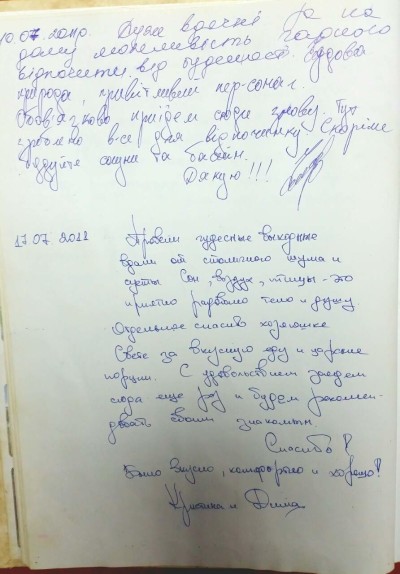 10.07.2011р. Дуже вдячні за на
дану можливість гарного
відпочити від буденності. Чудова
природа, привітливий персонал.
Обов'язково приїдем сюди знову. Тут
зроблено все для відпочинку. Скоріше
будуйте сауни та басейн.
Дякую!!!
17.07.2011 Провели чудесные выходные
вдали от столичного шума и
суеты. Сон, воздух, птицы - это
приятно радовало тело и душу.
Отдельное спасибо хозяюшке
Свете за вкусную еду и хорошие
порции. С удовольствием заедем
сюда еще раз и будем рекомен-
довать своим знакомым.
Спасибо!
Было вкусно, комфортно и хорошо!
Кристина и Дима